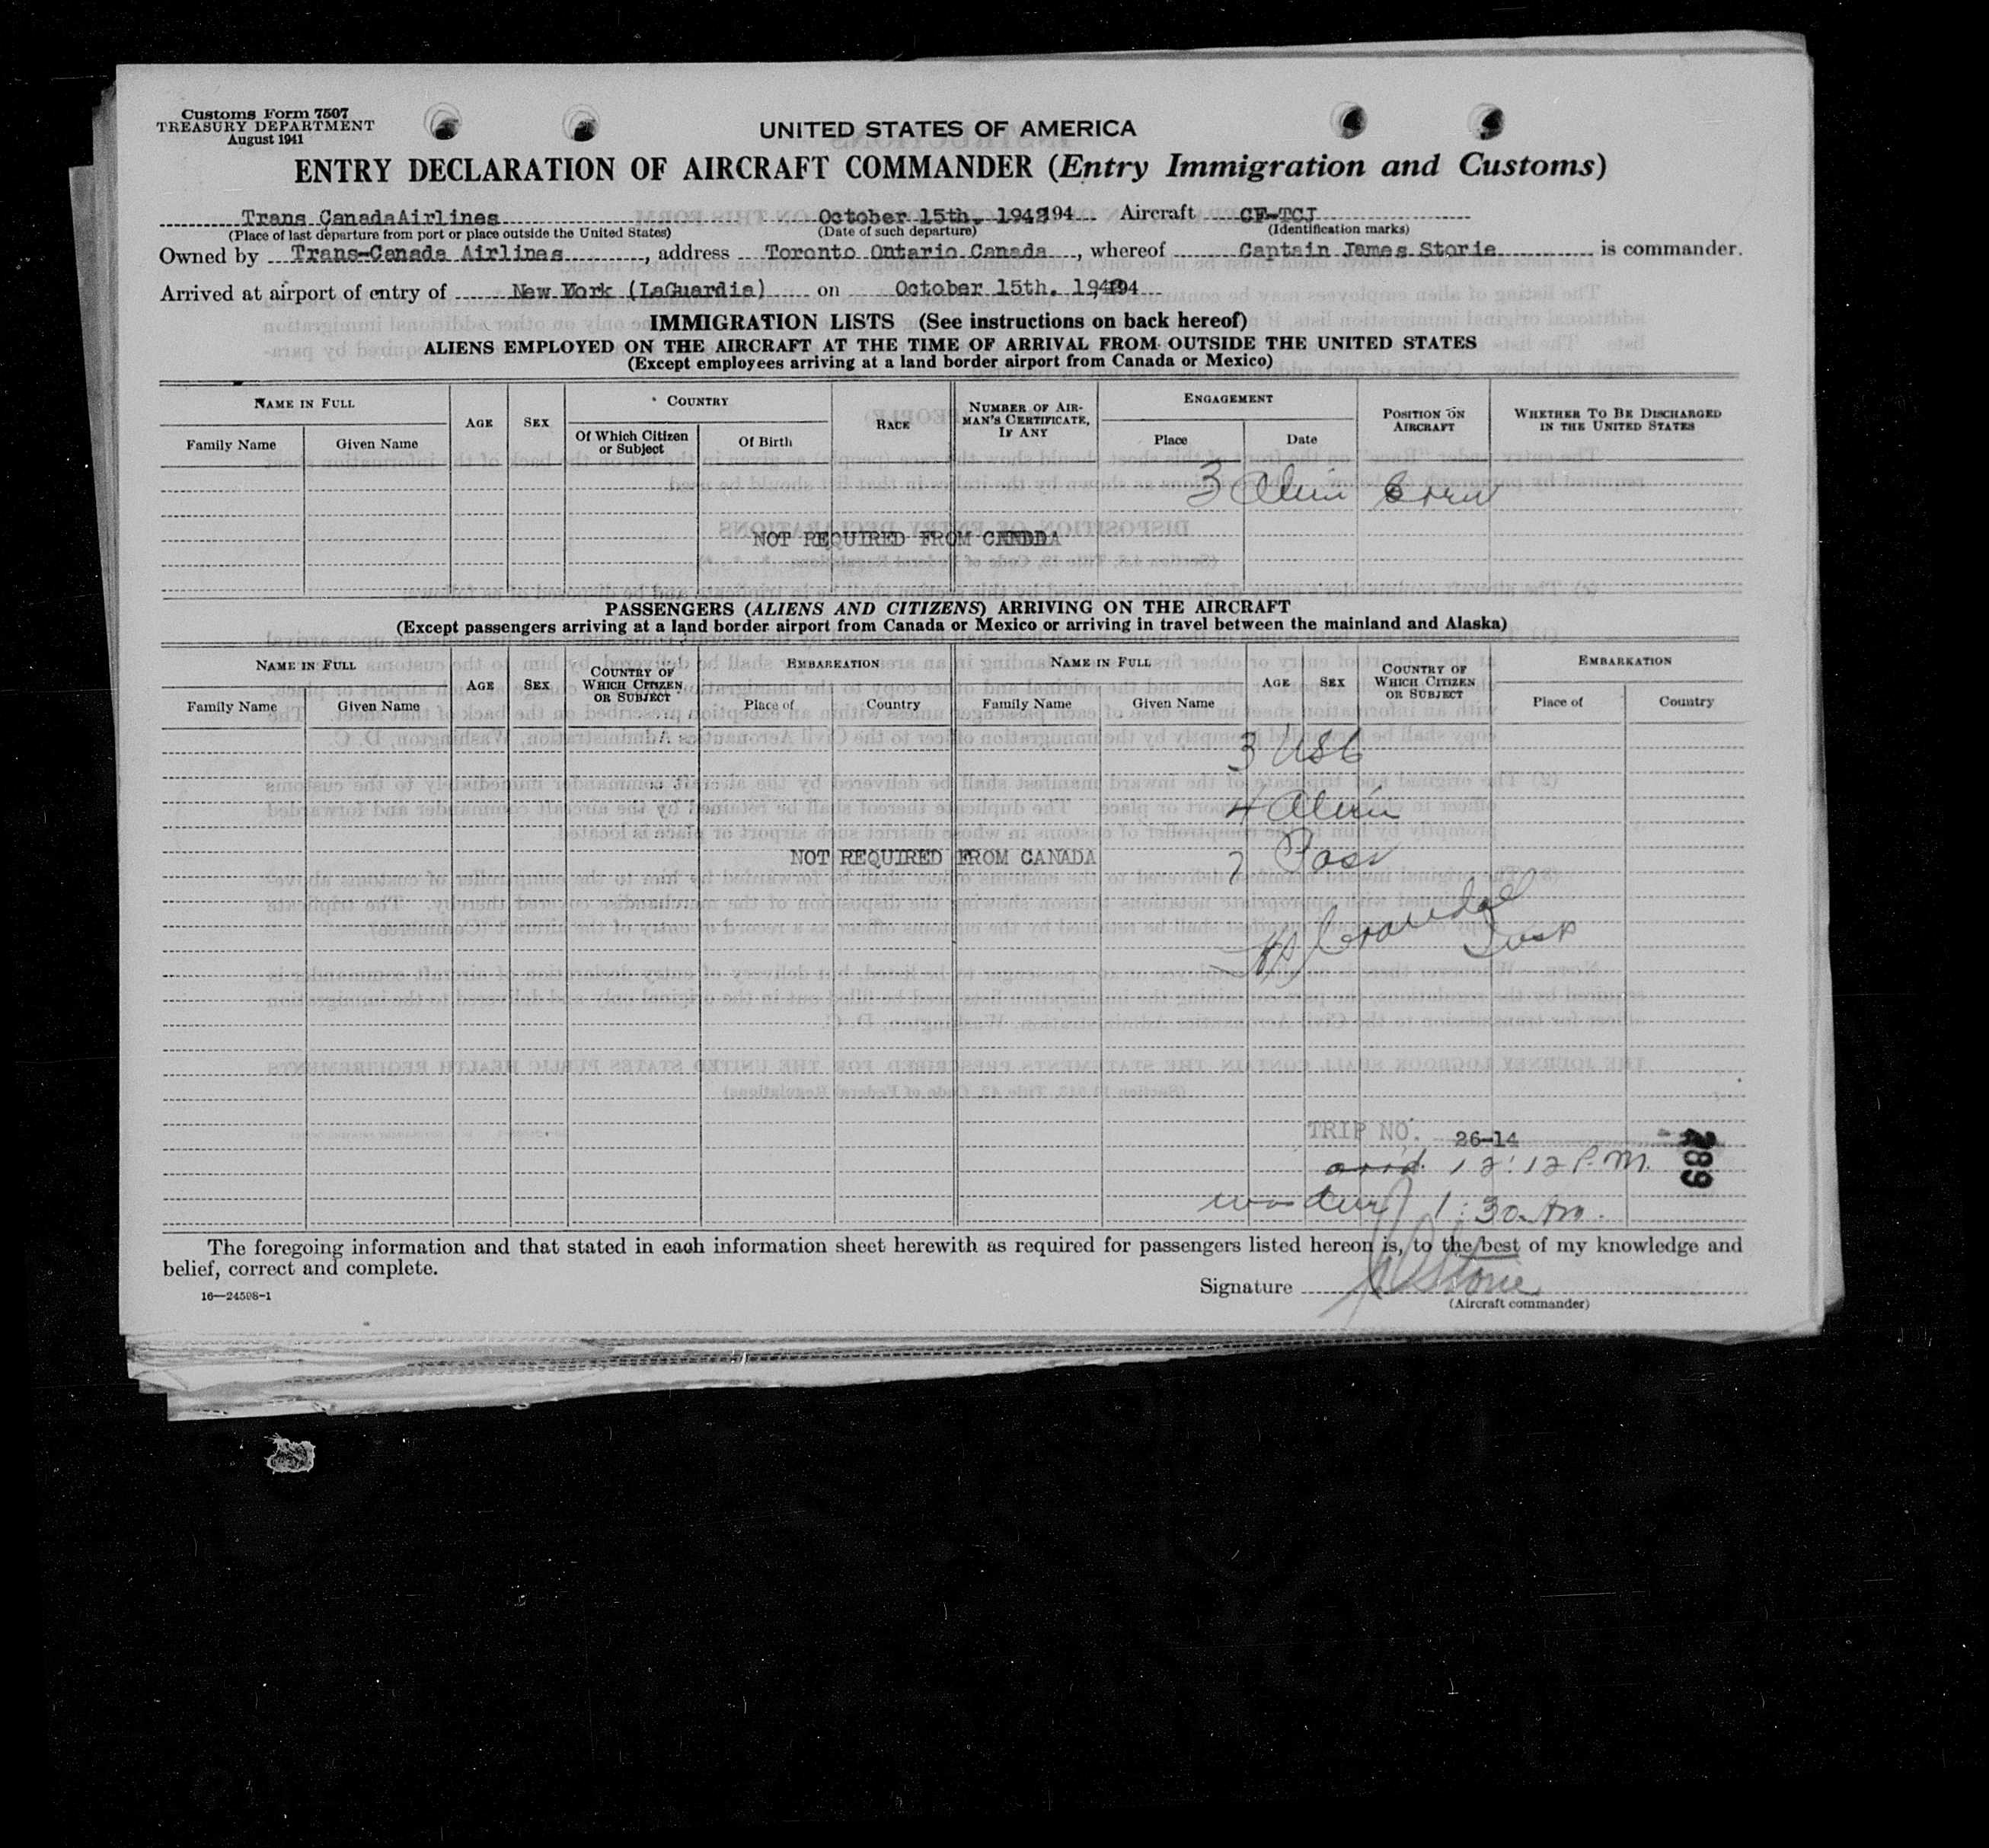 Customs Form 7507
TREASURY DEPARTMENT
August 1941
UNITED STATES OF AMERICA
ENTRY DECLARATION OF AIRCRAFT COMMANDER (Entry Immigration and Customs)
Trans CanadaAirlines October 15th, 194 194 Aircraft CF-TCJ
(Place of last departure from port or place outside the United States) (Date of such departure) (Identification marks)
Owned by Trans-Canada Airlines, address Toronto Ontario Canada, whereof Captain James Storie is commander.
Arrived at airport of entry of New York (LaGuardia) on October 15th. 194
IMMIGRATION LISTS (See instructions on back hereof)
ALIENS EMPLOYED ON THE AIRCRAFT AT THE TIME OF ARRIVAL FROM OUTSIDE THE UNITED STATES
(Except employees arriving at a land border airport from Canada or Mexico)
NAME IN FULL AGE SEX COUNTRY RACE NUMBER OF AIRMAN'S CERTIFICATE, IF ANY ENGAGEMENT POSITION ON AIRCRAFT WHETHER TO BE DISCHARGED IN THE UNITED STATES
Family Name Given Name Of Which Citizen or Subject Of Birth Place Date
3 Alien Crew
NOT REQUIRED FROM CANADA
PASSENGERS (ALIENS AND CITIZENS) ARRIVING ON THE AIRCRAFT
(Except passengers arriving at a land border airport from Canada or Mexico or arriving in travel between the mainland and Alaska)
NAME IN FULL AGE SEX COUNTRY OF WHICH CITIZEN OR SUBJECT EMBARKATION NAME IN FULL AGE SEX COUNTRY OF WHICH CITIZEN OR SUBJECT EMBARKATION
Family Name Given Name Place of Country Family Name Given Name Place of Country
3 USC
4 Alien
NOT REQUIRED FROM CANADA 7 Pass
Crandal
Insp
TRIP NO. 26-14
289
arrd. 12:12 P.M.
1:30 Am.
The foregoing information and that stated in each information sheet herewith as required for passengers listed hereon is, to the best of my knowledge and
belief, correct and complete.
Signature Storie
16—24598-1 (Aircraft commander)